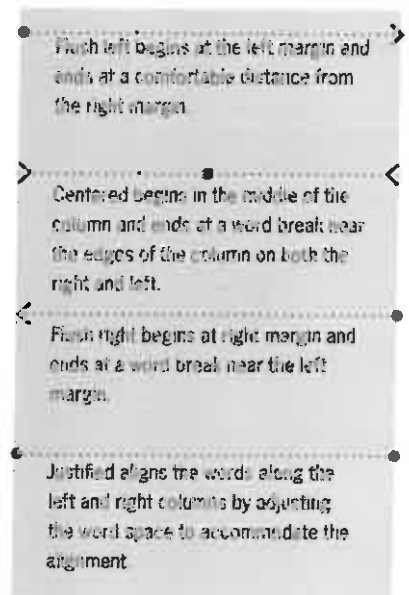 Flush left begins at the left margin and
ends at a comfortable distance from
the right margin.
Centered begins in the middle of the
column and ends at a word break near
the edges of the column on both the
right and left.
Flush right begins at right margin and
ends at a word break near the left
margin.
Justified aligns the words along the
left and right columns by adjusting
the word space to accommodate the
alignment